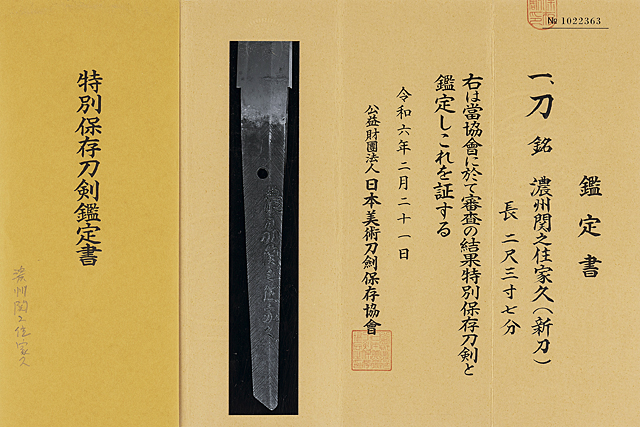 № 1022363
鑑定書
一、刀 銘 濃州関之住家久(新刀)
長 二尺三寸七分
右は當協會に於て審査の結果特別保存刀剣と
鑑定しこれを証する
令和六年二月二十一日
公益財團法人日本美術刀剣保存協會
特別保存刀剣鑑定書
濃州関之住家久